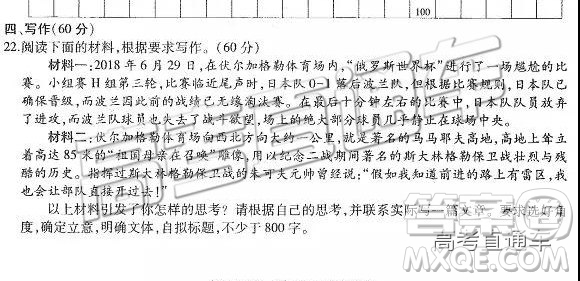 100
四、写作(60 分)
22.阅读下面的材料,根据要求写作。(60 分)
材料一:2018 年 6 月 29 日,在伏尔加格勒体育场内,“俄罗斯世界杯”进行了一场尴尬的比
赛。小组赛 H 组第三轮,比赛临近尾声时,日本队 0-1 落后波兰队,但根据比赛规则,日本队已
确保晋级,而波兰因此前的战绩已无缘淘汰赛。在最后十分钟左右的比赛中,日本队队员放弃
了进攻,而波兰队球员也失去了战斗欲望,场上的绝大部分球员几乎静止在球场中央。
材料二:伏尔加格勒体育场向西北方向大约一公里,就是著名的马马耶夫高地,高地上耸立
着高达 85 米的“祖国母亲在召唤”雕像,用以纪念二战期间著名的斯大林格勒保卫战壮烈与残
酷的历史。指挥过斯大林格勒保卫战的朱可夫元帅曾经说:“假如我知道前进的路上有雷区,我
也会让部队直接开过去!”
以上材料引发了你怎样的思考?请根据自己的思考,并联系实际写一篇文章。要求选好角
度,确定立意,明确文体,自拟标题,不少于 800 字。
高考直通车
答案圈